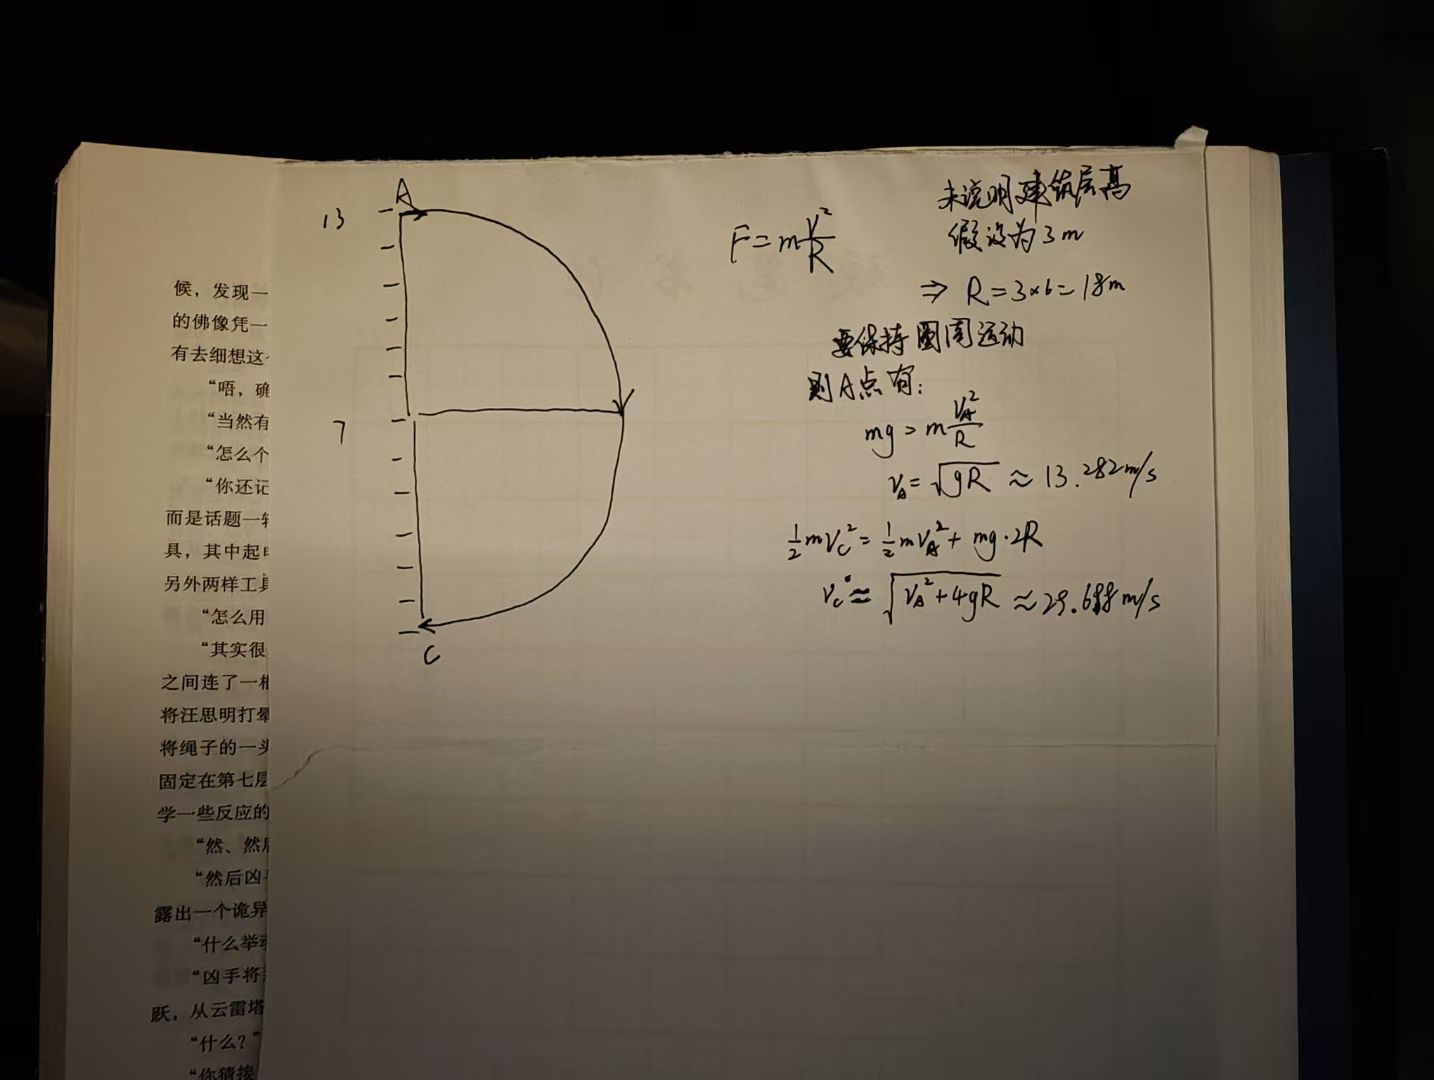 A
13
7
C
F=m\frac{v^2}{R}
未说明建筑层高
假设为3m
⇒ R=3×6=18m
要保持圆周运动
则A点有:
mg=m\frac{v_A^2}{R}
v_A=\sqrt{gR}≈13.282m/s
\frac{1}{2}mv_C^2=\frac{1}{2}mv_A^2+mg·2R
v_C≈\sqrt{v_A^2+4gR}≈29.698m/s
候，发现一
的佛像凭一
有去细想这
“唔，确
“当然有
“怎么个
“你还记
而是话题一转
具，其中起
另外两样工具
“怎么用
“其实很
之间连了一根
将汪思明打晕
将绳子的一头
固定在第七层
学一些反应的
“然、然后
“然后凶
露出一个诡异
“什么举动
“凶手将
跃，从云雷塔
“什么？”
“你猜接